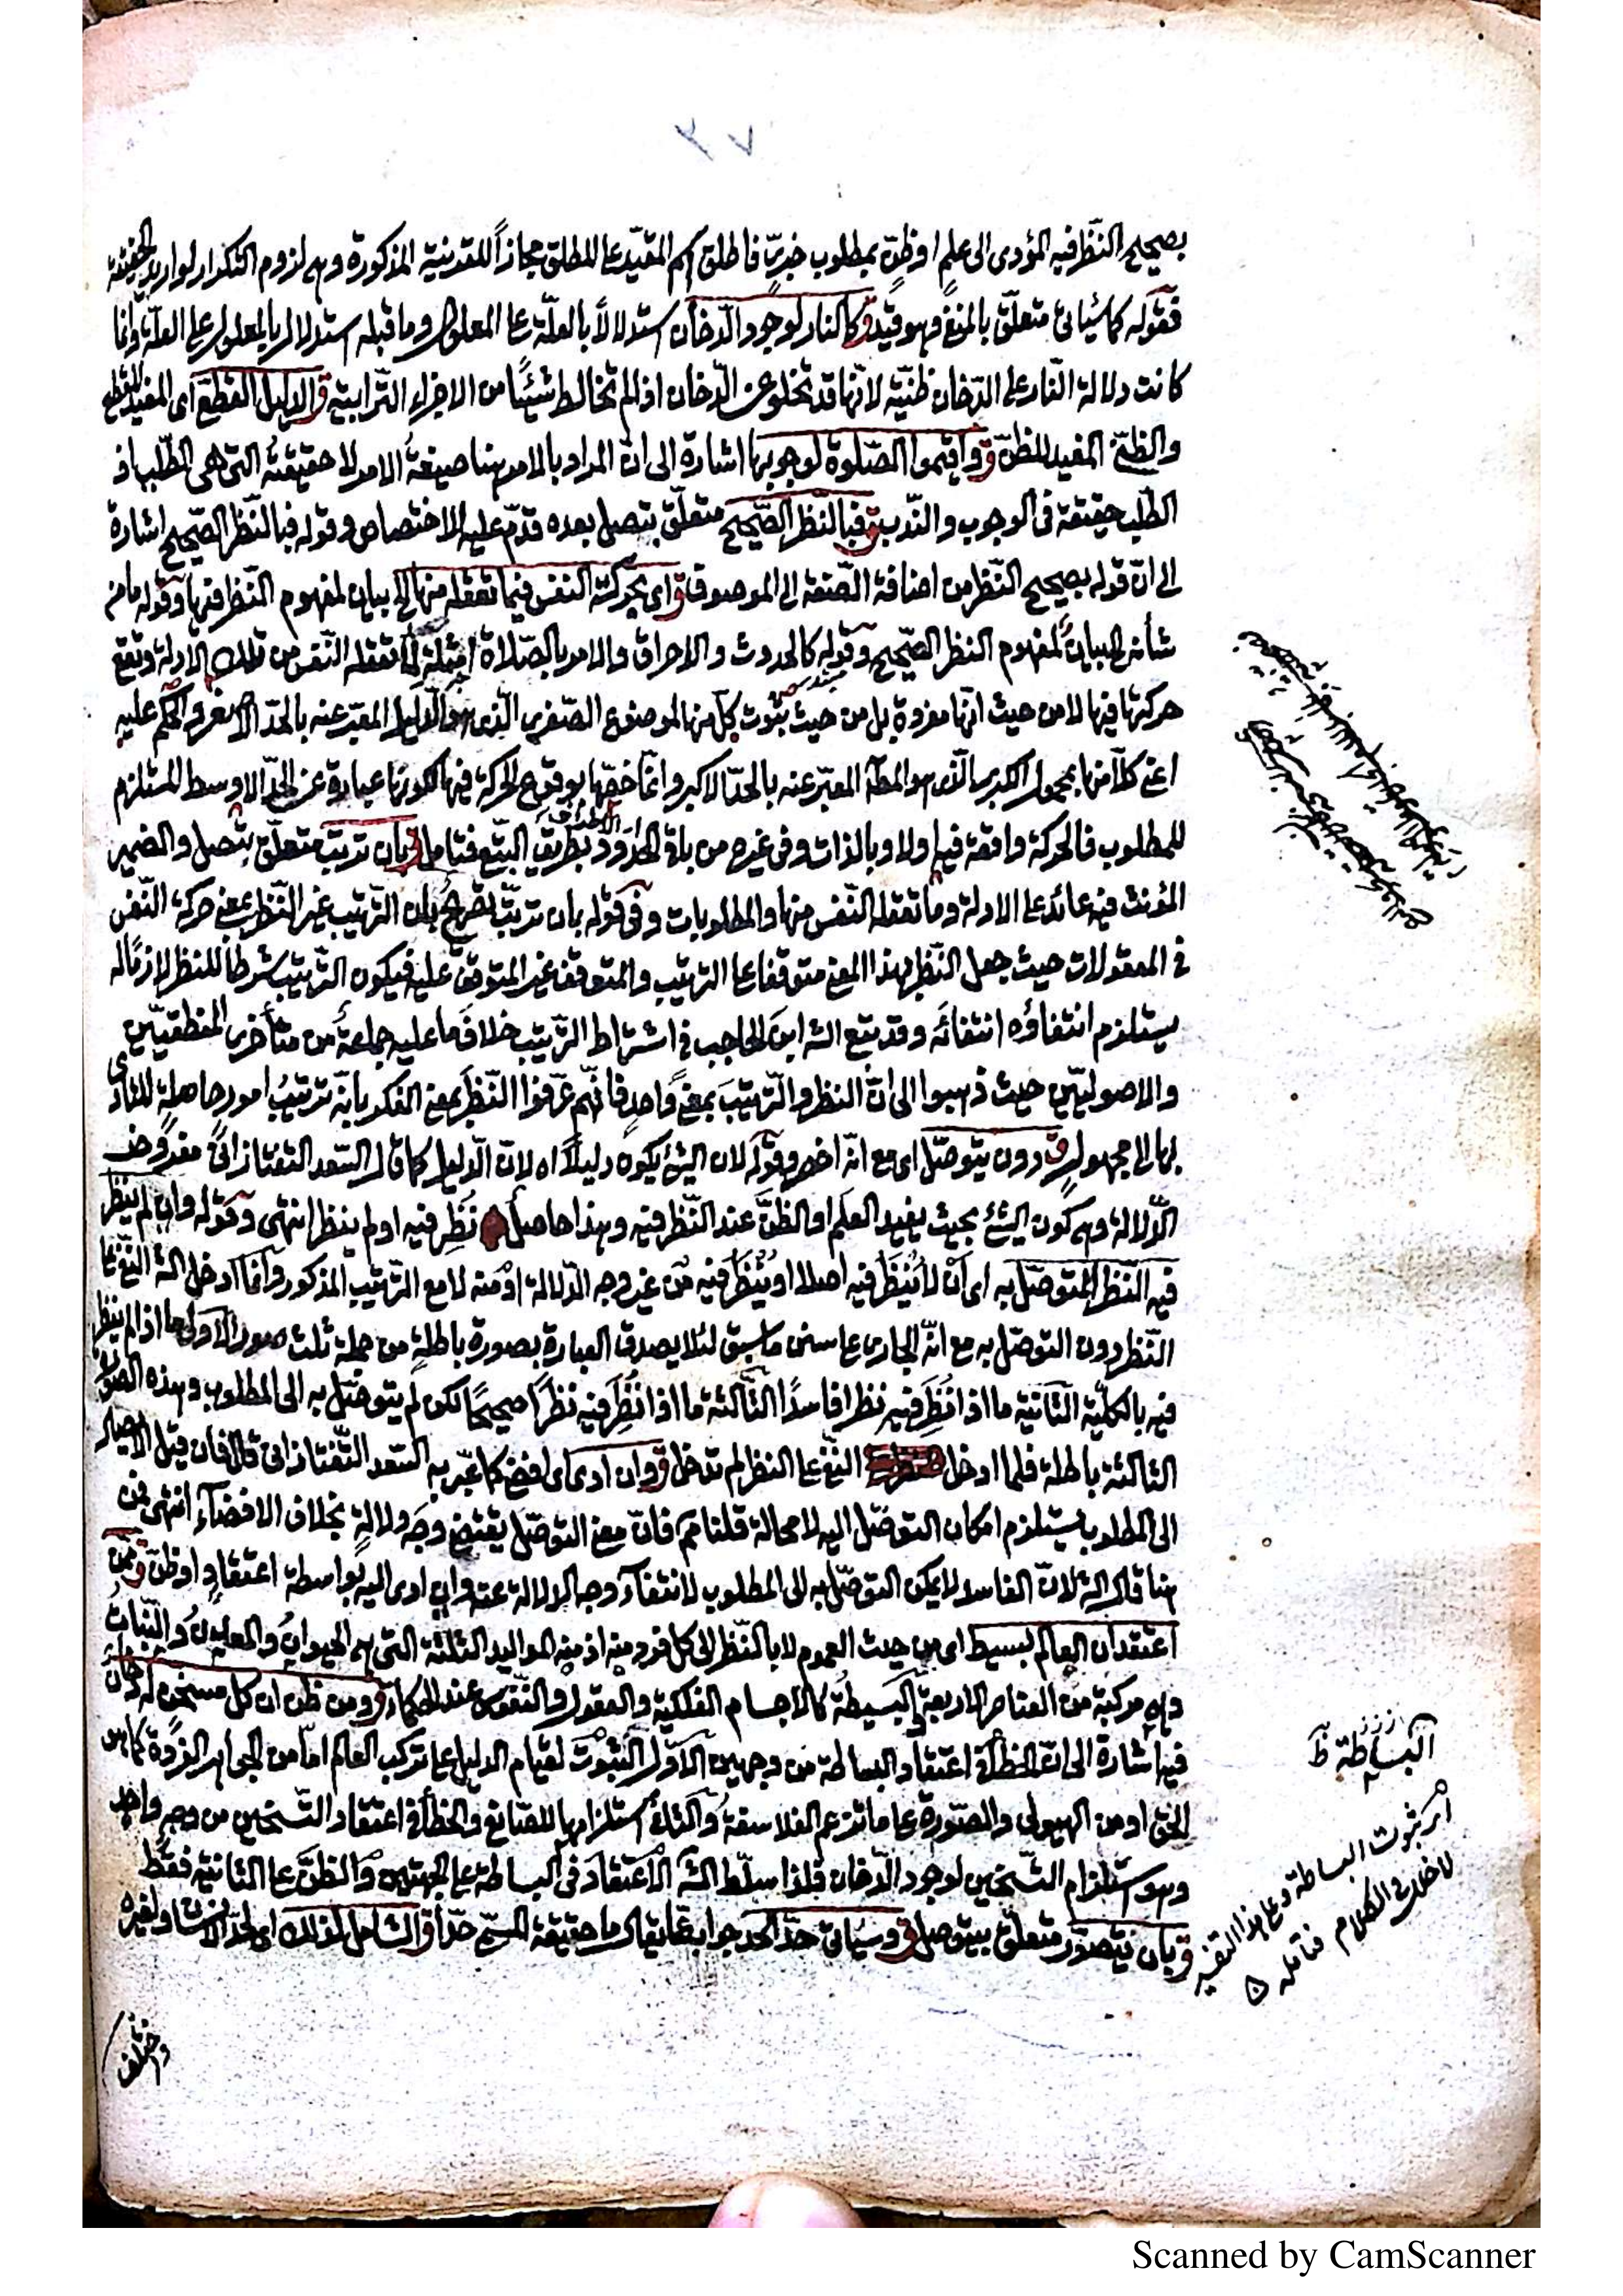 ٣٧
بصحيح النظر فيه المؤدى الى علم او ظن بمطلوب خبرى فاطلق اسم المقيد على المطلق مجازاً للقرينة المذكورة وهى لزوم التكرار لو اريد الحقيقة
فقوله كما سيأتى متعلق بالمنفى وهو قيد ق كالنار لوجود الدخان استدلالاً بالعلة على المعلول وما قبله استدلال بالمعلول على العلة وانما
كانت دلالة النار على الدخان ظنية لانها قد تخلو عن الدخان اذا لم تخالط شيئًا من الاجزاء الترابية ق الدليل القطعى اى المفيد للقطع
والظنى المفيد للظن ق واقيموا الصلوة لوجوبها اشارة الى ان المراد بالامر هنا صيغة الامر لا حقيقته التى هى الطلب اذ
الطلب حقيقة فى الوجوب والندب ق فبالنظر الصحيح متعلق بتصل بعده قدم عليه للاختصاص وقوله فبالنظر الصحيح اشارة
الى ان قوله بصحيح النظر من اضافة الصفة الى الموصوف ق اى بحركة النفس فيما تعقله منها الخ بيان لمفهوم النظر فيها وقوله ما من
شأنه الخ بيان لمفهوم النظر الصحيح وقوله كالحدوث والاحراق والامر بالصلاة امثلة لما تعقله النفس من تلك الادلة وتقع
حركتها فيها لا من حيث انها مفردة بل من حيث ثبوت كل منها لموضوع الصغرى الذى هو الدليل المعبر عنه بالحد الاصغر والحكم عليه
اعنى كلاً منها بمحمول الكبرى الذى هو المط المعبر عنه بالحد الاكبر وانما خصها بوقوع الحركة فيها لكونها عبارة عن الحد الاوسط المستلزم
للمطلوب فالحركة واقعة فيها اولا وبالذات وفى غيره من باقى الحدود بطريق التبع فتأمل ق بان ترتب متعلق بتصل والضمير
المؤنث فيه عائد على الادلة وما تعقله النفس منها والمطلوبات وفى قوله بان ترتب تصريح بان الترتيب غير النظر بمعنى حركة النفس
فى المعقولات حيث جعل النظر بهذا المعنى متوقفا على الترتيب والمتوقف غير المتوقف عليه فيكون الترتيب شرطا للنظر لازمًا له
يستلزم انتفاؤه انتفائه وقد تبع الشه ابن الحاجب فى اشتراط الترتيب خلاف ما عليه جماعة من متأخرى المنطقيين
والاصوليين حيث ذهبوا الى ان النظر والترتيب بمعنى واحد فانهم عرفوا النظر بمعنى الفكر بانه ترتيب امور حاصلة للتأدى
بها الى مجهول ق دون يتوصل اى مع انه اخصر وقوله لان الشئ يكون دليلاً اه لان الدليل كما قال السعد التفتازانى معروض
الدلالة وهى كون الشئ بحيث يفيد العلم او الظن عند النظر فيه وهذا حاصل نظر فيه او لم ينظر انتهى وقوله وان لم ينظر
فيه النظر المتوصل به اى ان لا ينظر فيه اصلا او ينظر فيه من غير وجه الدلالة او منه لا مع الترتيب المذكور وانما ادخل الشه النفى على
النظر دون التوصل به مع انه الجارى على سنن ما سبق لئلا يصدق العبارة بصورة باطلة من جملة ثلث صور الاولى ما اذا لم ينظر
فيه بالكلية الثانية ما اذا نظر فيه نظرا فاسدًا الثالثة ما اذا نظر فيه نظرًا صحيحًا لكن لم يتوصل به الى المطلوب وهذه الصورة
الثالثة باطلة فلما ادخل النفى على النظر لم تدخل ق وان ادى اى افضى كما عبر به السعد التفتازانى قال فان قيل الايصال
الى المطلوب يستلزم امكان التوصل اليه لا محالة قلنا مم فان معنى التوصل يقتضى وجه دلالة بخلاف الافضاء انتهى من
هنا قال الشه لان الفاسد لا يمكن التوصل به الى المطلوب لانتفاء وجه الدلالة عنه وان ادى اليه بواسطة اعتقاد او ظن ق ممن
اعتقد ان العالم بسيط اى من حيث العموم لا بالنظر الى كل فرد منه اذ منه المواليد الثلثة التى هى الحيوان والمعدن والنبات
وهى مركبة من العناصر الاربعة البسيطة كالاجسام الفلكية والعقول والنفوس عند الحكماء ق ومن ظن ان كل مسخن له دخان
فيه اشارة الى ان الخطأ فى اعتقاد البساطة من وجهين الاول الثبوت لقيام الدليل على تركب العالم اما من الجواهر الفردة كما هو
الحق او من الهيولى والصورة على ما تزعم الفلاسفة والثانى استلزامها للصانع والخطأ فى اعتقاد التسخين من وجه واحد
وهو استلزام التسخين لوجود الدخان فلذا سلط الشه الاعتقاد فى البساطة على الجهتين والظن على الثانية فقط
ق بان يتصور متعلق بيتوصل ق وسيأتى حد الحد جوابه ما يقال ما حقيقة المسمى حدًا ق الشامل لذلك اى لحد الانشاء ولغيره
البساطة ظ
امر ثبوت البساطة وعلى هذا التفسير
لا خلل فى الكلام فتأمله
واختلف